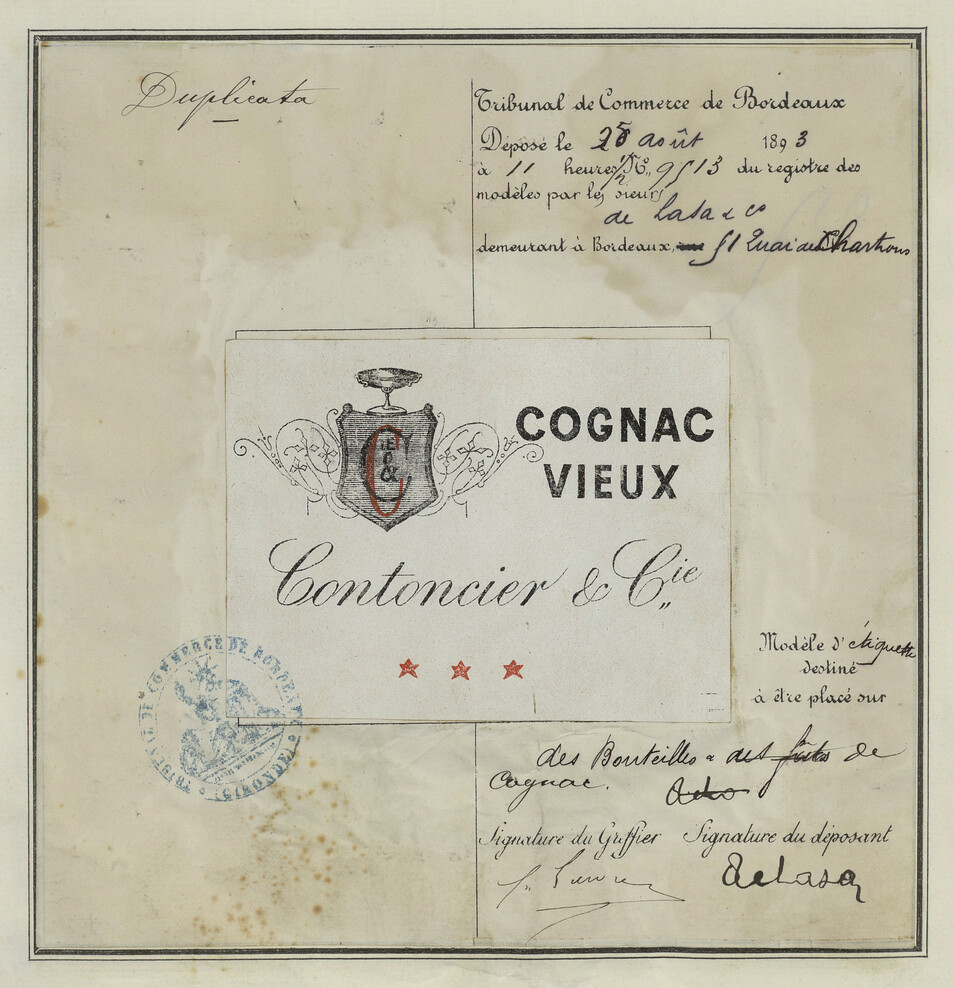 Duplicata
Tribunal de Commerce de Bordeaux
Déposé le 25 août 1893
à 11 heures 1/2 N° 9513 du registre des
modèles par les sieurs
de Lasa & Co
demeurant à Bordeaux, 51 Quai des Chartrons
COGNAC
VIEUX
C
& Co
Contoncier & Cie
TRIBUNAL DE COMMERCE DE BORDEAUX
(GIRONDE)
Modèle d'étiquette
destiné
à être placé sur
des Bouteilles & des fûts de
Cognac.
Signature du Greffier Signature du déposant
de Lasa